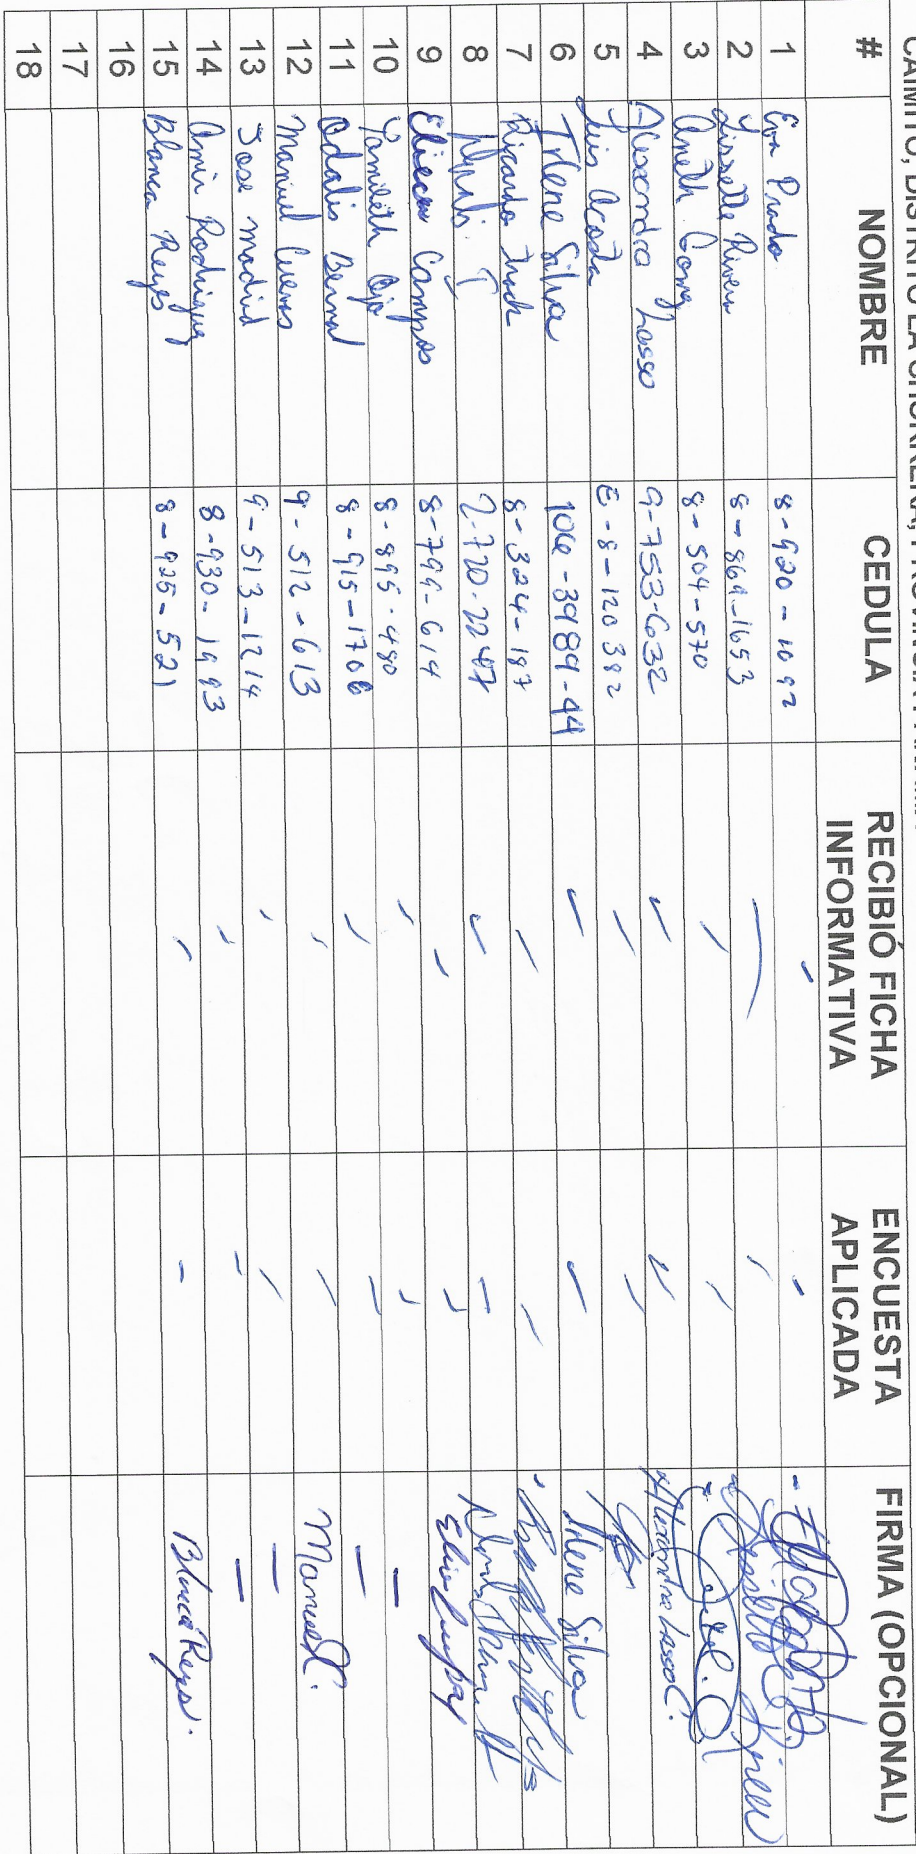 CAIMITO, DISTRITO LA CHORRERA, PROVINCIA PANAMÁ
# NOMBRE CEDULA RECIBIÓ FICHA INFORMATIVA ENCUESTA APLICADA FIRMA (OPCIONAL)
1 Eva Prado 8-920-1092
2 Lissette Rivera 8-864-1653 Lissette Rivera
3 Aneth Gomez 8-504-570
4 Alexandra Lasso 9-753-632 Alexandra Lasso C.
5 Luis Acosta E-8-120382
6 Irlene Silva 106-3989-44 Irlene Silva
7 Ricardo 8-324-187
8 2-720-2247
9 Eliecer Campos 8-799-614
10 Yamileth 8-895-480 –
11 Odalis Bernal 8-915-1706 –
12 Manuel Cuevas 9-512-613 Manuel C.
13 Jose Madrid 9-513-1214 –
14 Amir Rodriguez 8-930-1993 –
15 Blanca Reyes 8-925-521 Blanca Reyes.
16
17
18